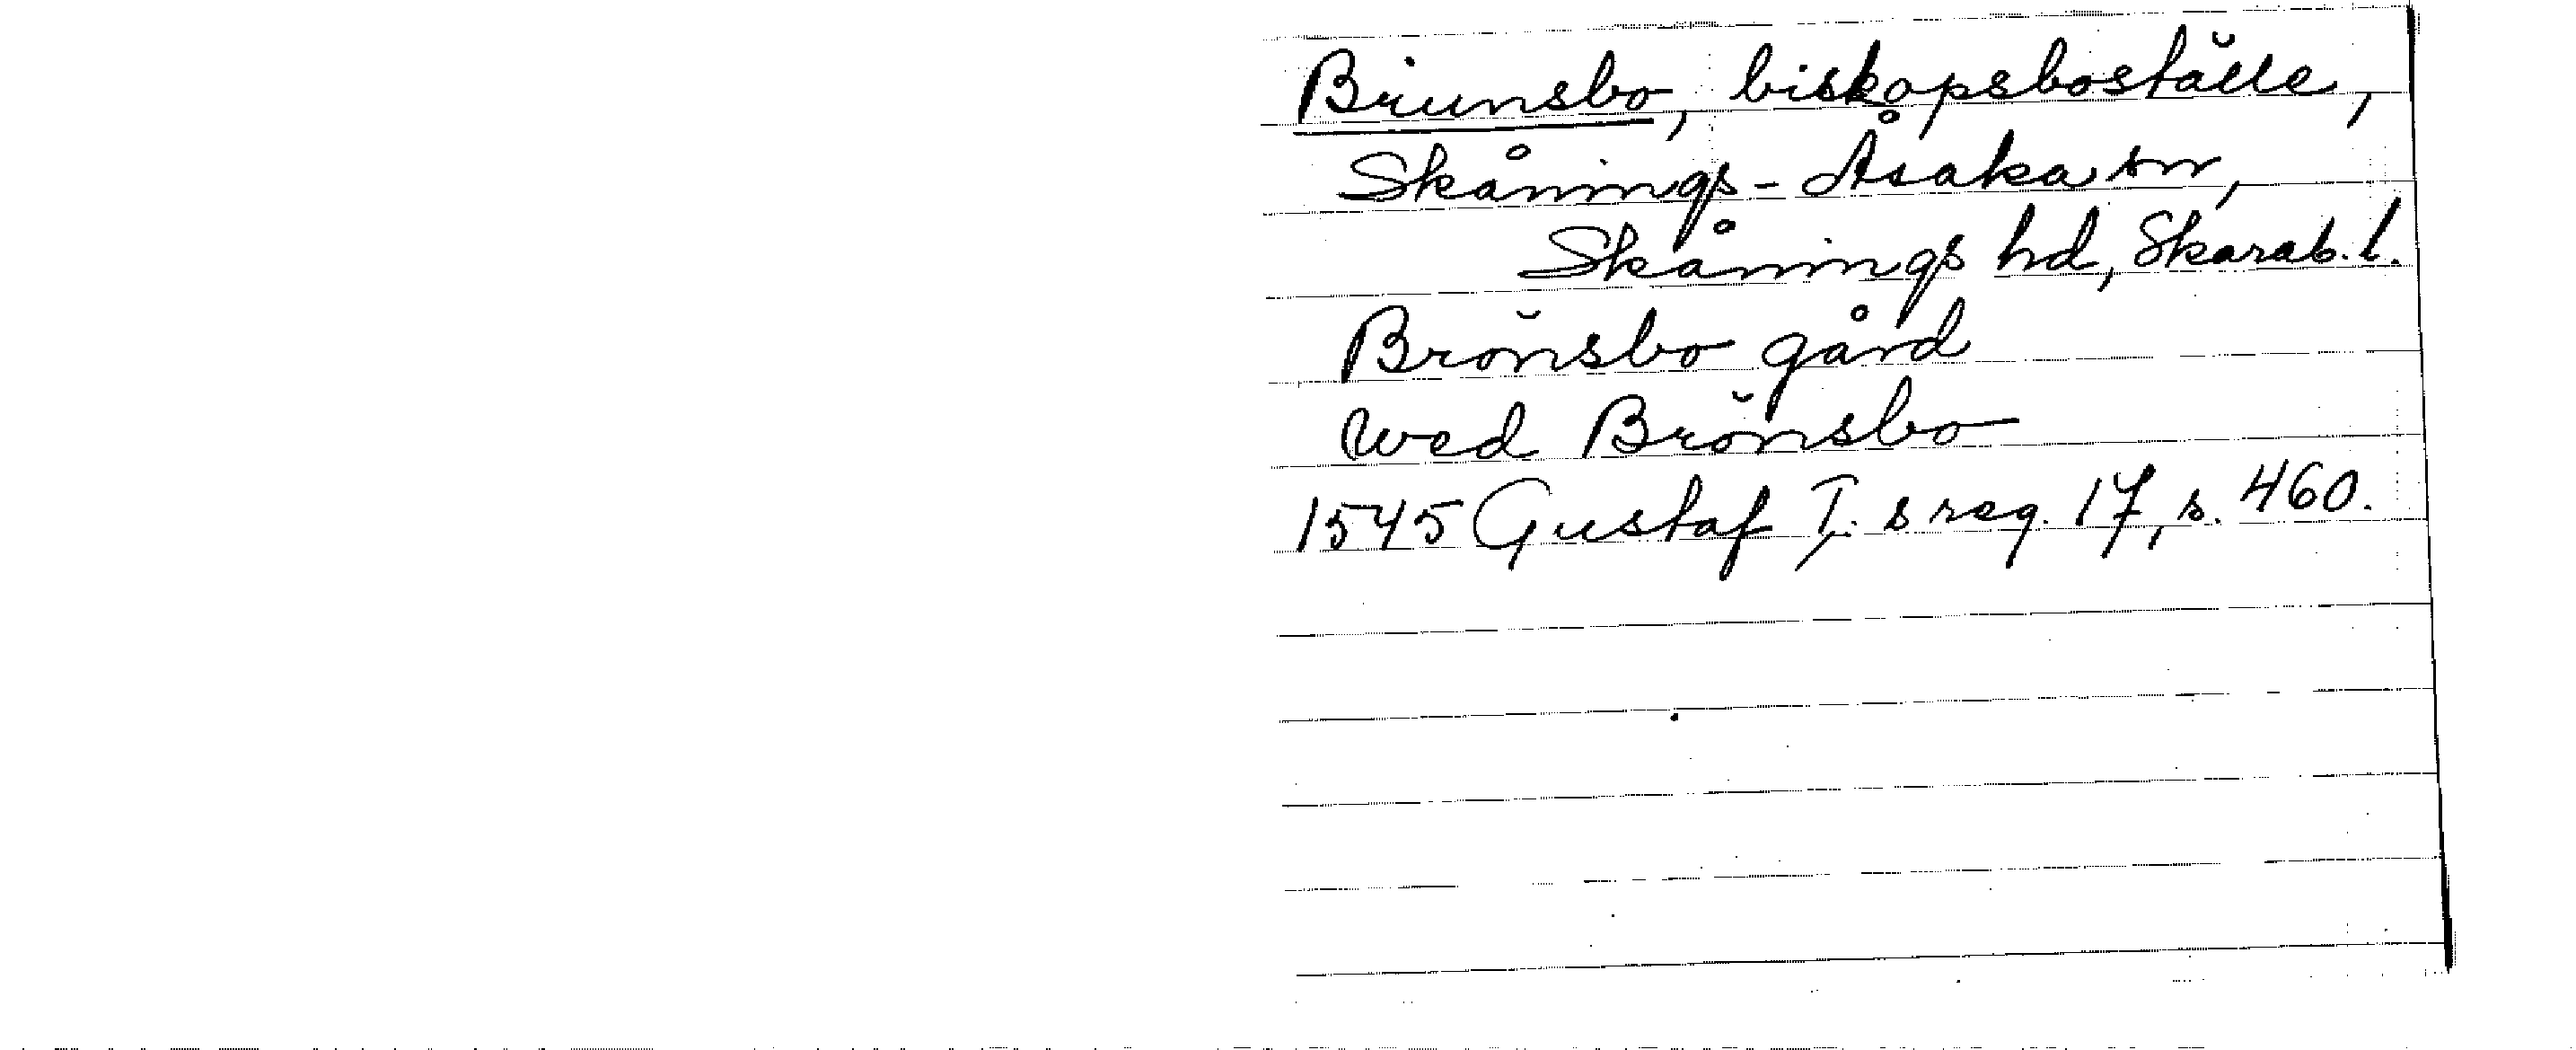 Brunsbo, biskopsboställe,
Skånings-Åsaka sn,
Skånings hd, Skarab. l.
Brönsbo gård
wed Brönsbo
1545 Gustaf I:s reg. 17, s. 460.